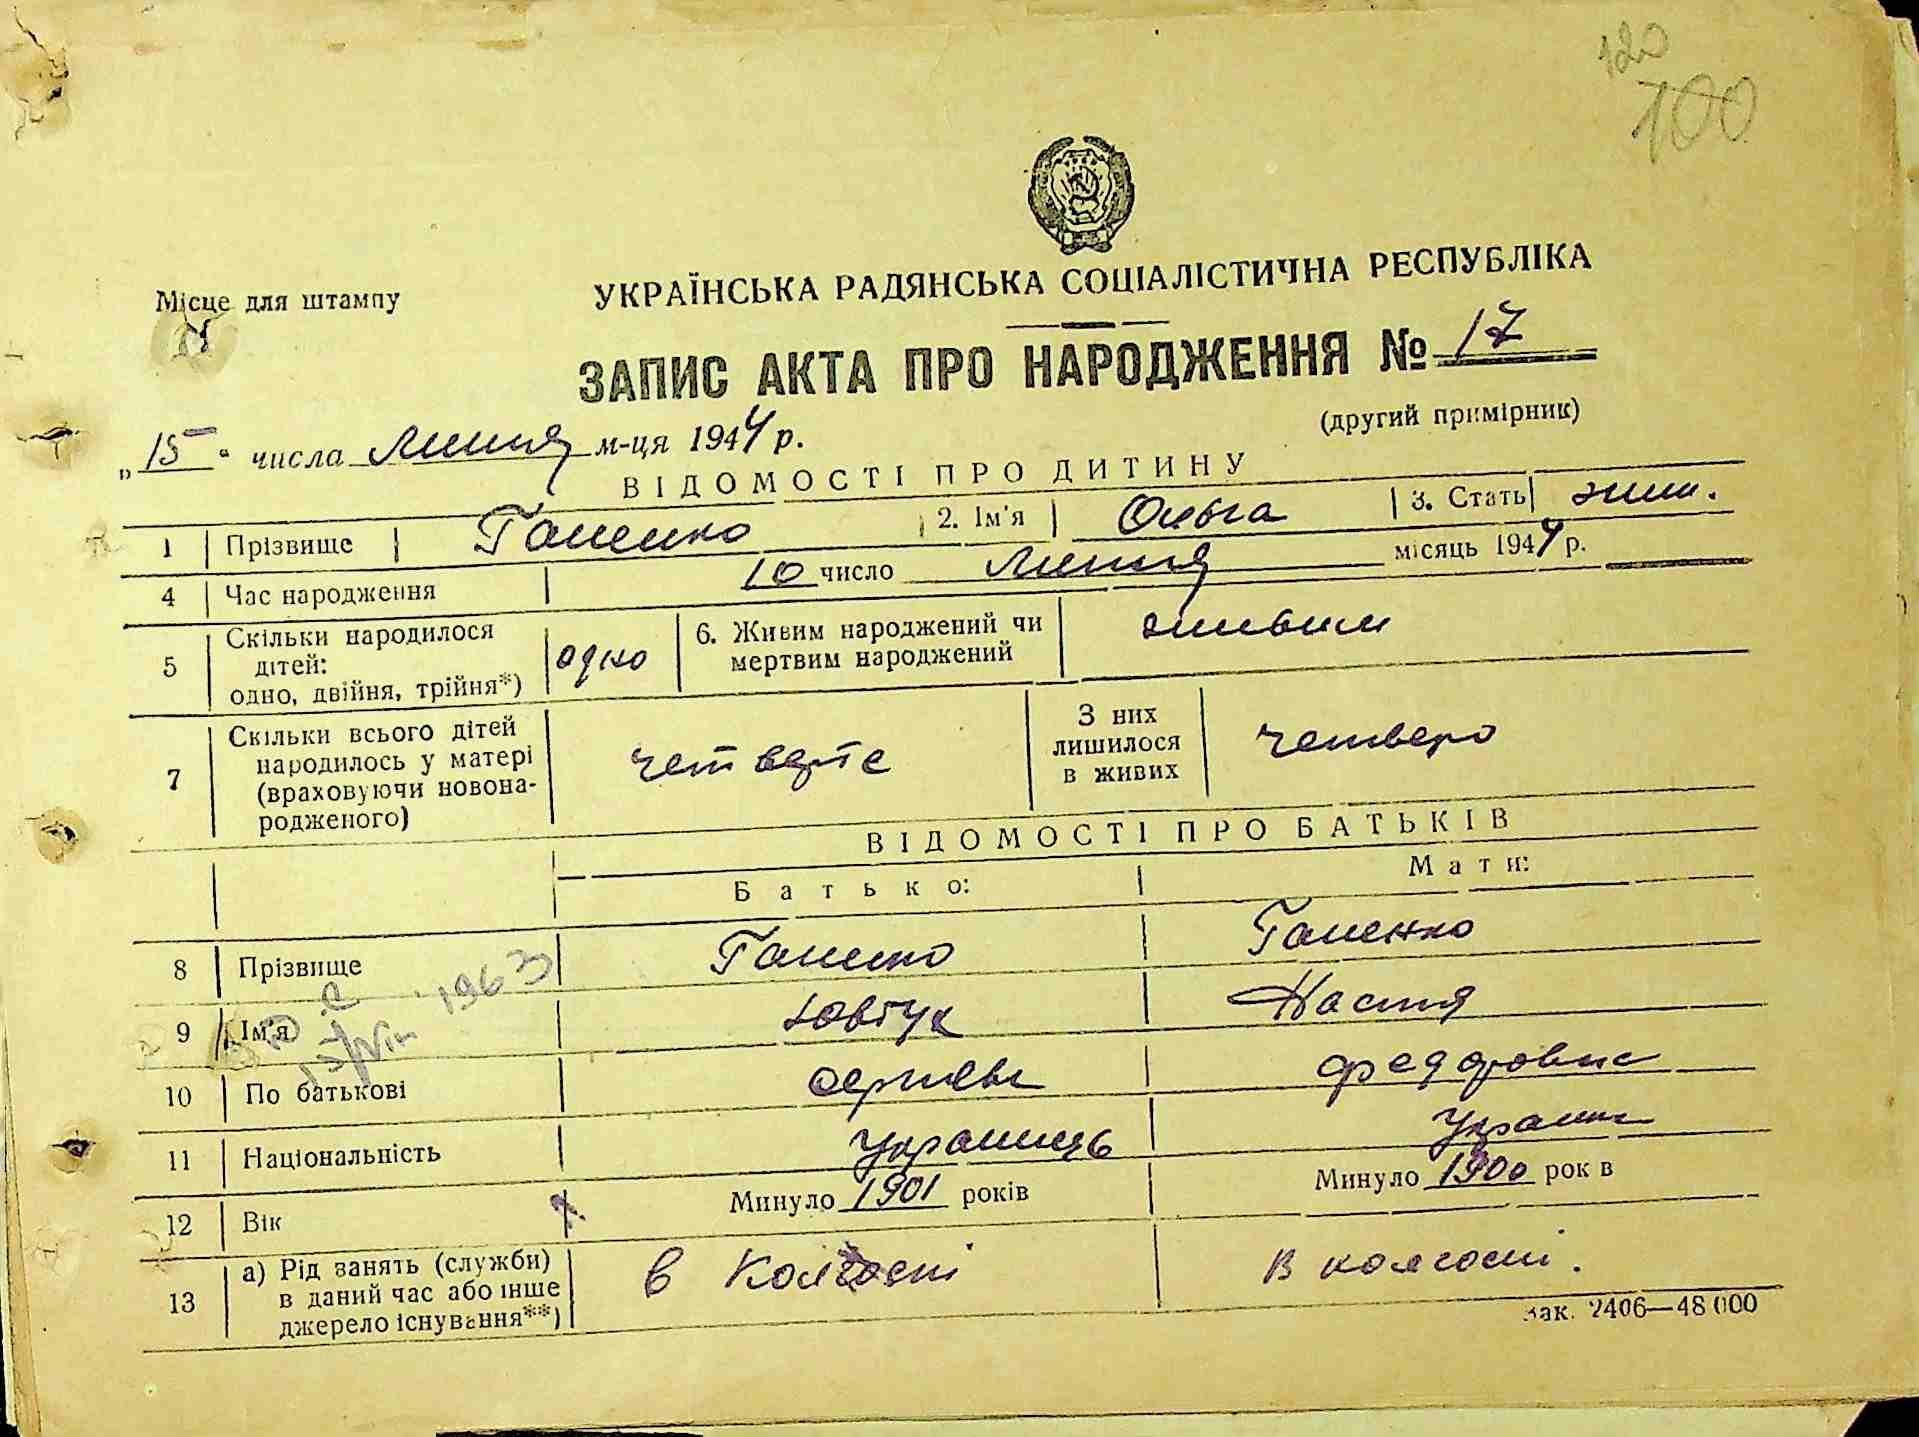 120
100
Місце для штампу
УКРАЇНСЬКА РАДЯНСЬКА СОЦІАЛІСТИЧНА РЕСПУБЛІКА
ЗАПИС АКТА ПРО НАРОДЖЕННЯ № 17
(другий примірник)
„15“ числа Липня м-ця 1944 р.
ВІДОМОСТІ ПРО ДИТИНУ
1 Прізвище Гапенко 2. Ім'я Ольга 3. Стать жін.
4 Час народження 10 число Липня місяць 1944 р.
5 Скільки народилося дітей: одно, двійня, трійня*) одно 6. Живим народжений чи мертвим народжений живим
7 Скільки всього дітей народилось у матері (враховуючи новонародженого) четверте З них лишилося в живих четверо
ВІДОМОСТІ ПРО БАТЬКІВ
Батько: Мати:
8 Прізвище Гапенко Гапенко
1963
9 Ім'я Настя
10 По батькові
11 Національність Украинець
12 Вік Минуло 1901 років Минуло 1900 рок в
13 а) Рід занять (служби) в даний час або інше джерело існування**) в Колгоспі в колгоспі.
Зак. 2406—48 000